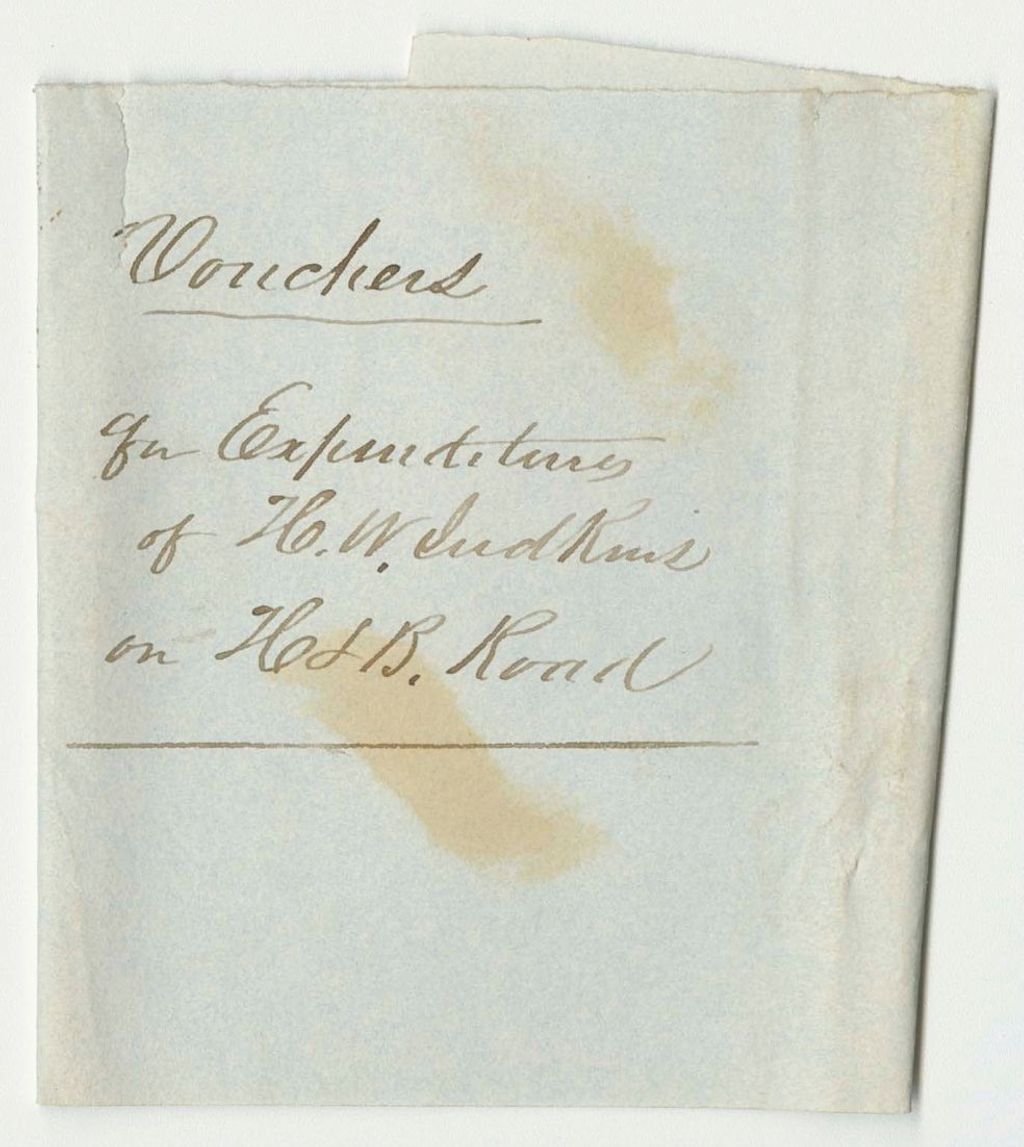 Vouchers
for Expenditures
of H. W. Judkins
on H & B. Road